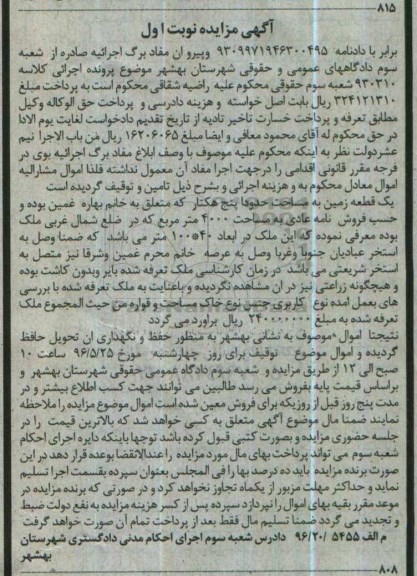 ۸۱۵
آگهی مزایده نوبت اول
برابر با دادنامه ۹۳۰۹۹۷۱۹۴۶۳۰۰۴۹۵ وپیرو ان مفاد برگ اجرائیه صادره از شعبه
سوم دادگاههای عمومی و حقوقی شهرستان بهشهر موضوع پرونده اجرائی کلاسه
۹۳۰۳۱۰ شعبه سوم حقوقی محکوم علیه راضیه شقاقی محکوم است به پرداخت مبلغ
۳۲۴۱۲۱۳۱۰ ریال بابت اصل خواسته و هزینه دادرسی و پرداخت حق الوکاله وکیل
مطابق تعرفه و پرداخت خسارت تاخیر تادیه از تاریخ تقدیم دادخواست لغایت یوم الادا
در حق محکوم له آقای محمود معافی و ایضا مبلغ ۱۶۲۰۶۰۶۵ ریال من باب الاجرا نیم
عشردولت نظر به اینکه محکوم علیه موصوف با وصف ابلاغ مفاد برگ اجرائیه بوی در
فرجه مقرر قانونی اقدامی را درجهت اجرا مفاد آن معمول نداشته فلذا اموال مشارالیه
اموال معادل محکوم به و هزینه اجرائی و بشرح ذیل تامین و توقیف گردیده است
یک قطعه زمین به مساحت حدودا پنج هکتار که متعلق به خانم بهاره غمین بوده و
حسب فروش نامه عادی به مساحت ۴۰۰۰ متر مربع که در ضلع شمال غربی ملک
بوده معرفی نموده که این ملک در ابعاد ۴۰*۱۰۰ متر می باشد که ضمنا وصل به
استخر عبادیان جنوبا وغربا وصل به عرصه خانم محرم غمین وشرقا نیز متصل به
استخر شریعتی می باشد در زمان کارشناسی ملک تعرفه شده بایر وبدون کاشت بوده
و هیچگونه زراعتی نیز در ان مشاهده نگردیده و باعنایت به ملک تعرفه شده با بررسی
های بعمل امده نوع کاربری جنس نوع خاک مساحت و قواره من حیث المجموع ملک
تعرفه شده به مبلغ ۲۴۰۰۰۰۰۰۰ ریال برآورد می گردد
نتیجتا اموال موصوف به نشانی بهشهر به منظور حفظ و نگهداری ان تحویل حافظ
گردیده و اموال موضوع توقیف برای روز چهارشنبه مورخ ۹۶/۵/۲۵ ساعت ۱۰
صبح الی ۱۲ از طریق مزایده و شعبه سوم دادگاه عمومی حقوقی شهرستان بهشهر و
براساس قیمت پایه بفروش می رسد طالبین می توانند جهت کسب اطلاع بیشتر و در
مدت پنج روز قبل از روزیکه برای فروش معین شده است اموال موضوع مزایده را ملاحظه
نمایند ضمنا مال موضوع آگهی متعلق به کسی خواهد شد که بالاترین قیمت را در
جلسه حضوری مزایده و بصورت کتبی قبول کرده باشد توجها باینکه دایره اجرای احکام
شعبه سوم می تواند پرداخت بهای مال مورد مزایده را عندالاقتضا بوعده قرار دهد در این
صورت برنده مزایده باید ده درصد بها را فی المجلس بعنوان سپرده بقسمت اجرا تسلیم
نماید و حداکثر مهلت مزبور از یکماه تجاوز نخواهد کرد و در صورتی که برنده مزایده در
موعد مقرر بقیه بهای اموال را نپردازد سپرده پس از کسر هزینه مزایده به نفع دولت ضبط
و تجدید می گردد ضمنا تسلیم مال فقط بعد از پرداخت تمام آن صورت خواهد گرفت
م الف ۵۴۵۵ /۹۶/۲۰ دادرس شعبه سوم اجرای احکام مدنی دادگستری شهرستان
بهشهر
۸۰۸